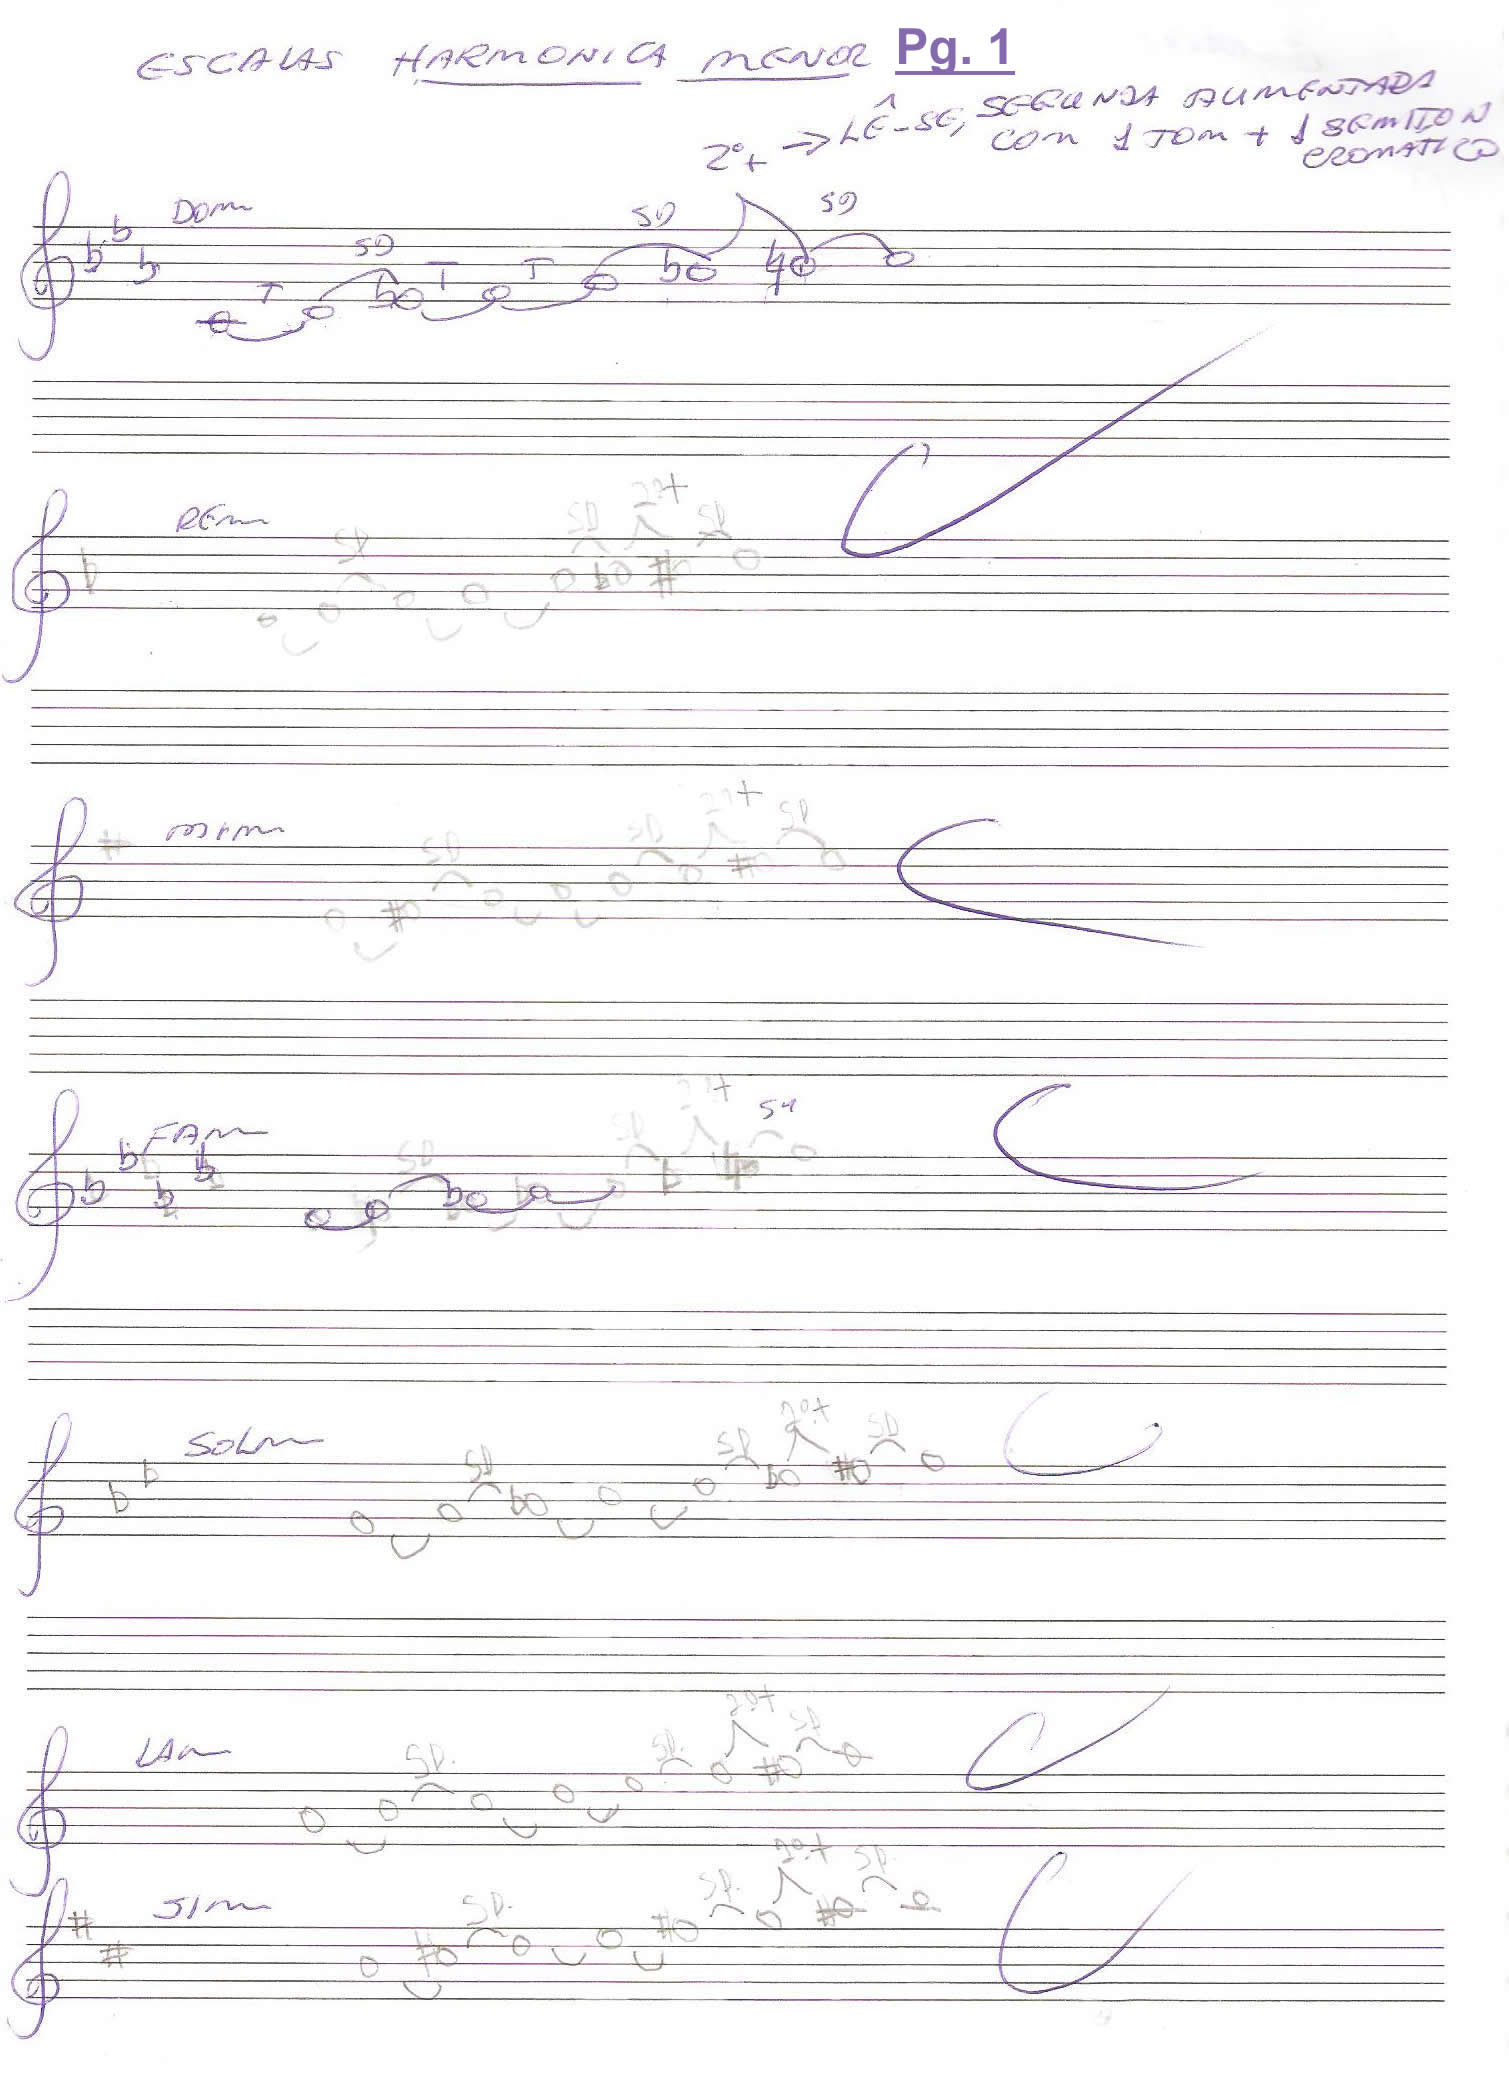 ESCALAS HARMONICA MENOR Pg. 1
2º+ → LÊ-SE, SEGUNDA AUMENTADA
COM 1 TOM + 1 SEMITON
CROMATICO
DOm
SD SD
T SD T T
REm
SD SD 2º+ SD
MIm
SD SD 2º+ SD
FAm
SD SD 2º+ SD
SOLm
SD SD 2º+ SD
LAm
SD. SD 2º+ SD
SIm
SD. SD. 2º+ SD.